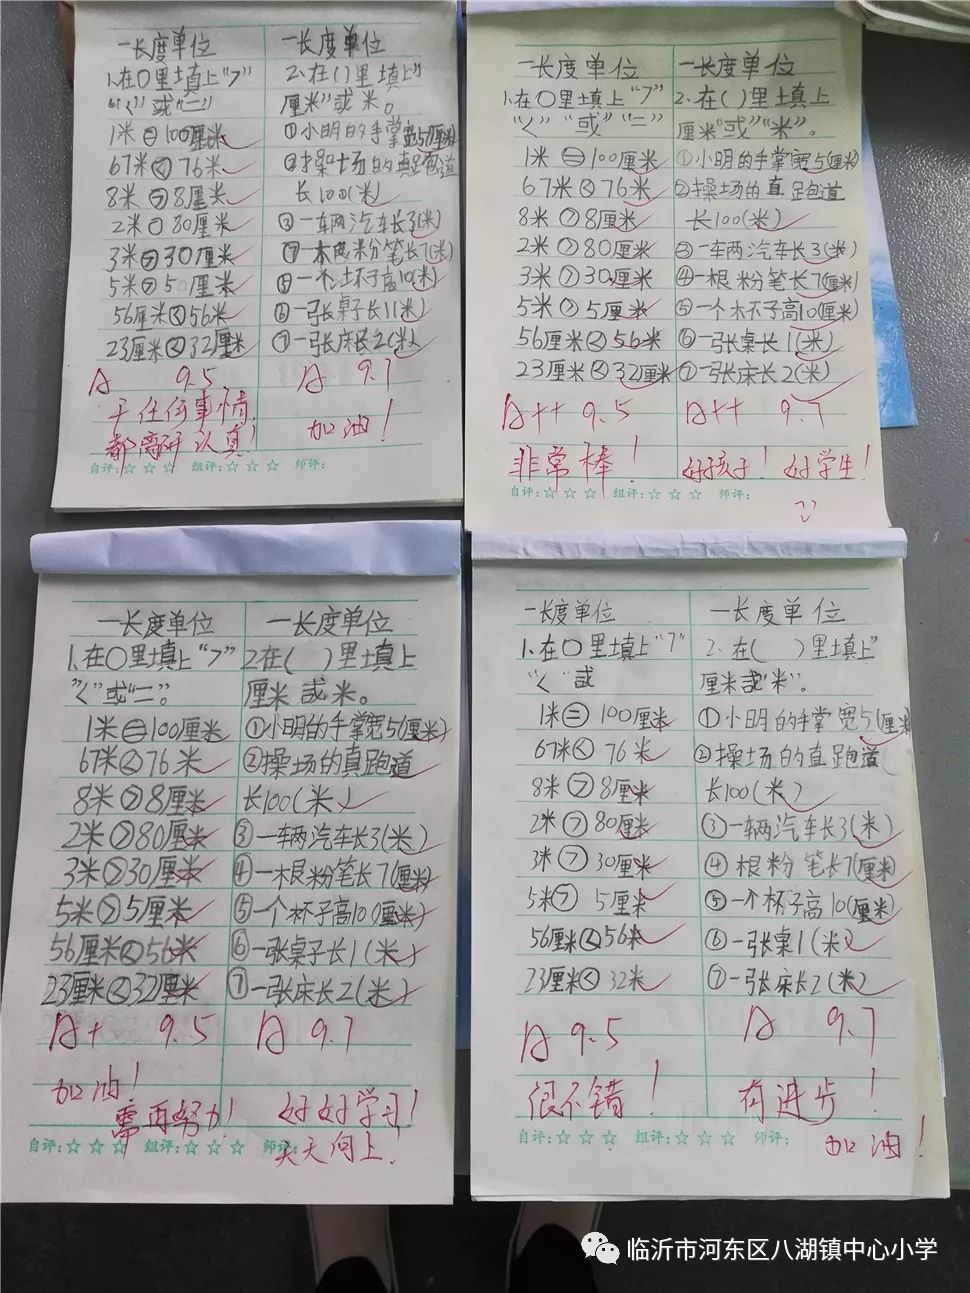 一长度单位
1.在○里填上“>”
“<”或“=”
1米=100厘米
67米<76米
8米>8厘米
2米○80厘米
3米>30厘米
5米>50厘米
56厘米<56米
23厘米<32厘米
A 9.5
干任何事情
都需要认真!
一长度单位
2.在()里填上“
厘米”或米。
①小明的手掌宽5(厘米)
②操场的直跑道
长100(米)
③一车两汽车长3(米)
长7(米)
高10(米)
⑥一张桌子长1(米)
⑦一张床长2(米)
A 9.7
加油!
自评:☆☆☆ 组评:☆☆☆ 师评:
一长度单位
1.在○里填上“>”
“<”“或”“=”
1米=100厘米
67米<76米
8米>8厘米
2米>80厘米
3米>30厘米
5米>5厘米
56厘米<56米
23厘米<32厘米
A++ 9.5
非常棒!
一长度单位
2.在()里填上
厘米“或”“米”。
①小明的手掌宽5(厘米)
②操场的直跑道
长100(米)
③一车两汽车长3(米)
④一根粉笔长7(厘米)
⑤一个杯子高10(厘米)
⑥一张桌长1(米)
⑦一张床长2(米)
A++ 9.7
好孩子!好学生!
自评:☆☆☆ 组评:☆☆☆ 师评:
一长度单位
1.在○里填上“>”
“<”或“=”。
1米=100厘米
67米<76米
8米>8厘米
2米>80厘米
3米>30厘米
5米>5厘米
56厘米<56米
23厘米<32厘米
A+ 9.5
加油!
需再努力!
一长度单位
2.在()里填上
厘米或米。
①小明的手掌宽5(厘米)
②操场的真跑道
长100(米)
③一车两汽车长3(米)
④一根粉笔长7(厘米)
⑤一个杯子高10(厘米)
⑥一张桌子长1(米)
⑦一张床长2(米)
A 9.7
好好学习!
天天向上!
自评:☆☆☆ 组评:☆☆☆ 师评:
一长度单位
1.在○里填上“>”
“<”或
1米=100厘米
67米<76米
8米>8厘米
2米>80厘米
3米>30厘米
5米>5厘米
56厘米<56米
23厘米<32米
A 9.5
很不错!
一长度单位
2.在()里填上“
厘米或“米”。
①小明的手掌宽5(厘米)
②操场的直跑道(
长100(米)
③一车两汽车长3(米)
④根粉笔长7(厘米)
⑤一个杯子高10(厘米)
⑥一张桌1(米)
⑦一张床长2(米)
A 9.7
有进步!
加油!
自评:☆☆☆ 组评:☆☆☆ 师评:
临沂市河东区八湖镇中心小学